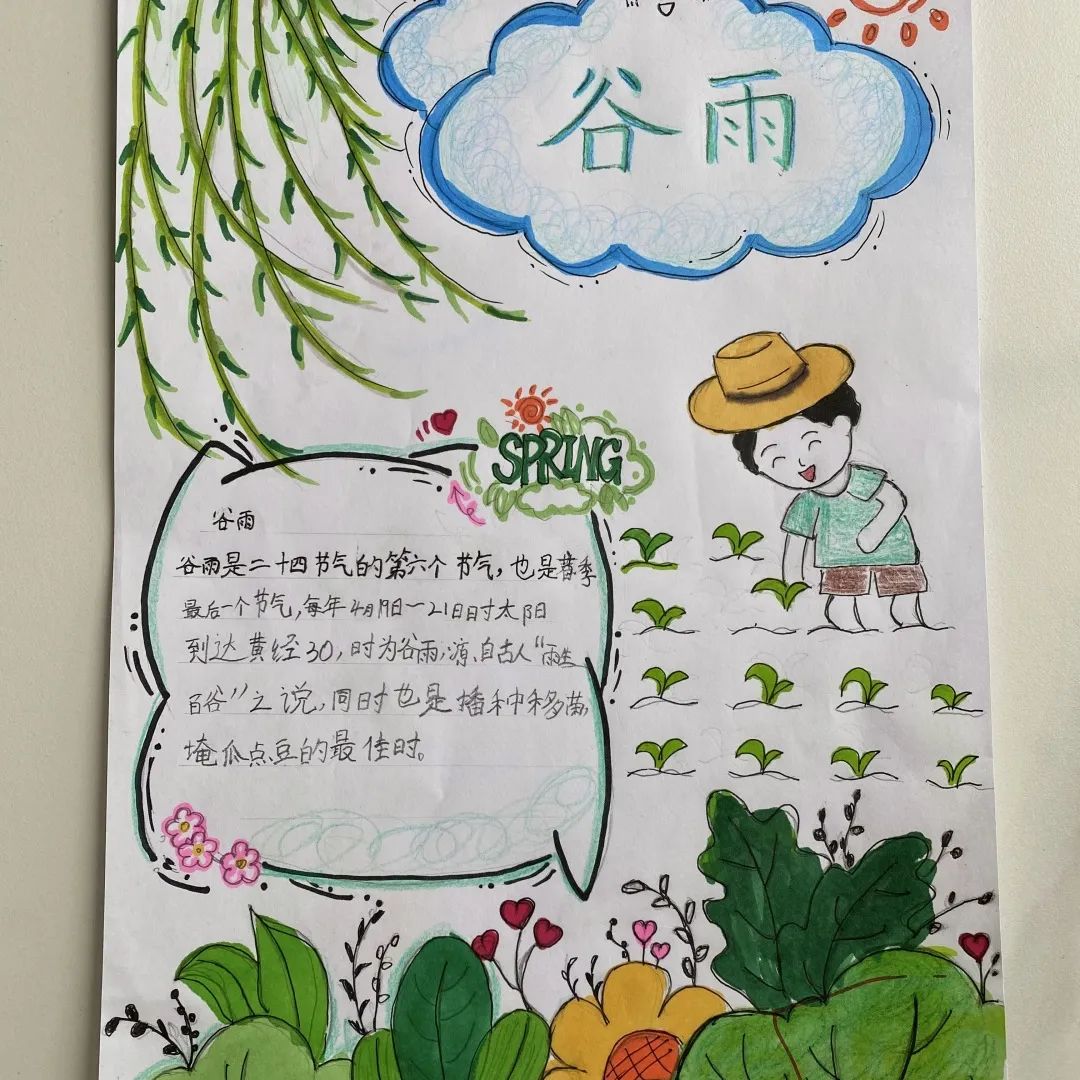 谷雨
SPRING
谷雨
谷雨是二十四节气的第六个节气，也是春季
最后一个节气，每年4月19日一21日时太阳
到达黄经30，时为谷雨，源自古人“雨生
百谷”之说，同时也是播种移苗，
埯瓜点豆的最佳时。